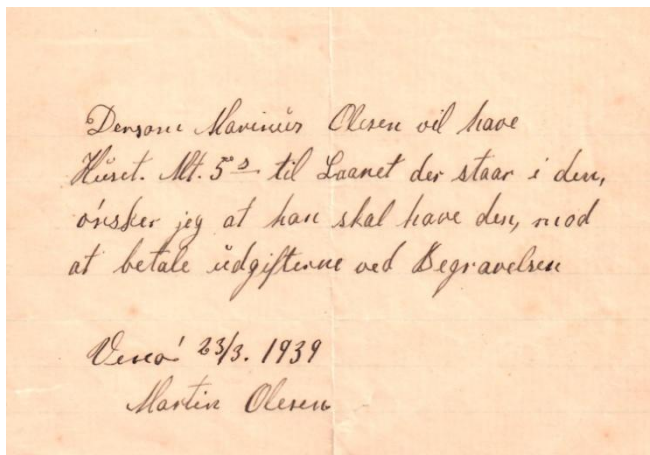 Dersom Marinus Olesen vil have
Huset. Mt. 5ᵃˢ til Laanet der staar i den,
ønsker jeg at han skal have den, mod
at betale udgifterne ved Begravelsen
Venø 23/3. 1939
Martin Olesen